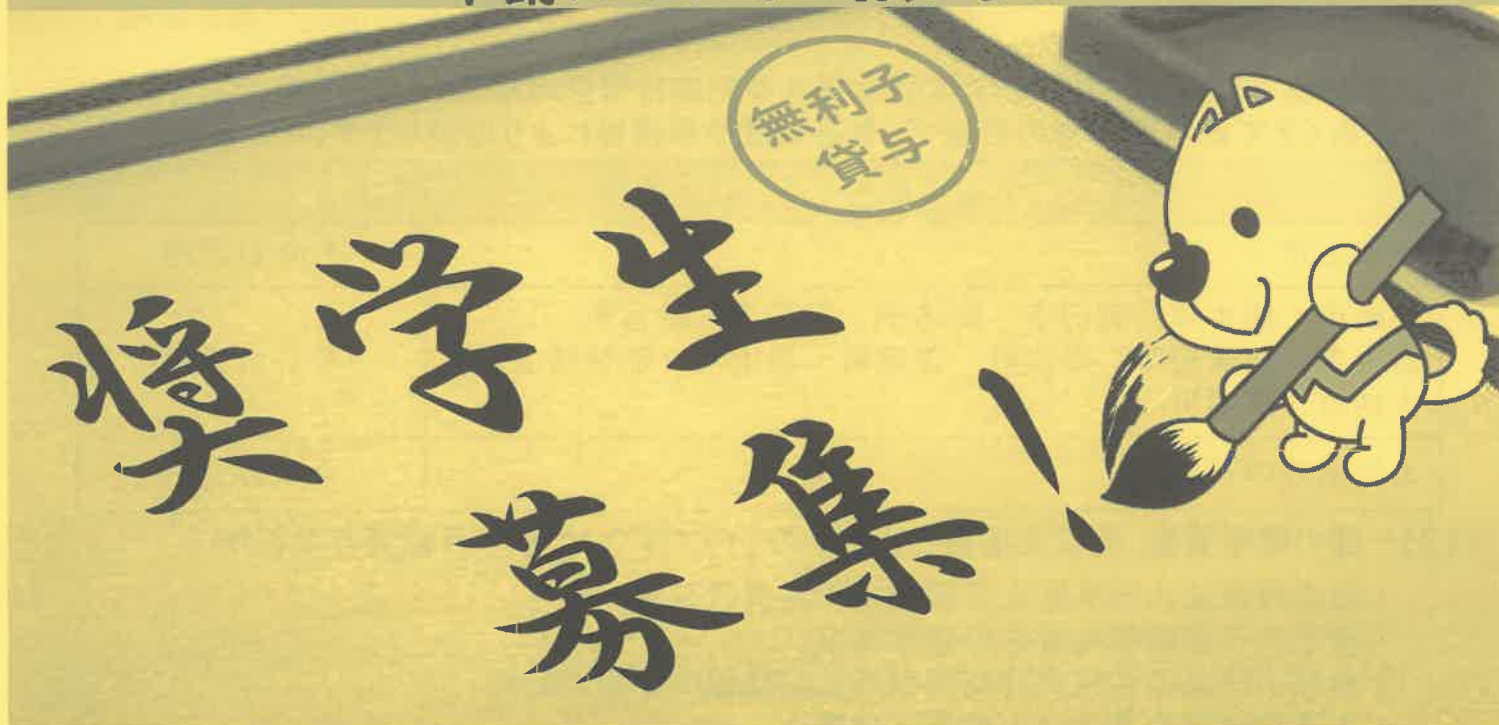 無利子
貸与
奨学生
募集!